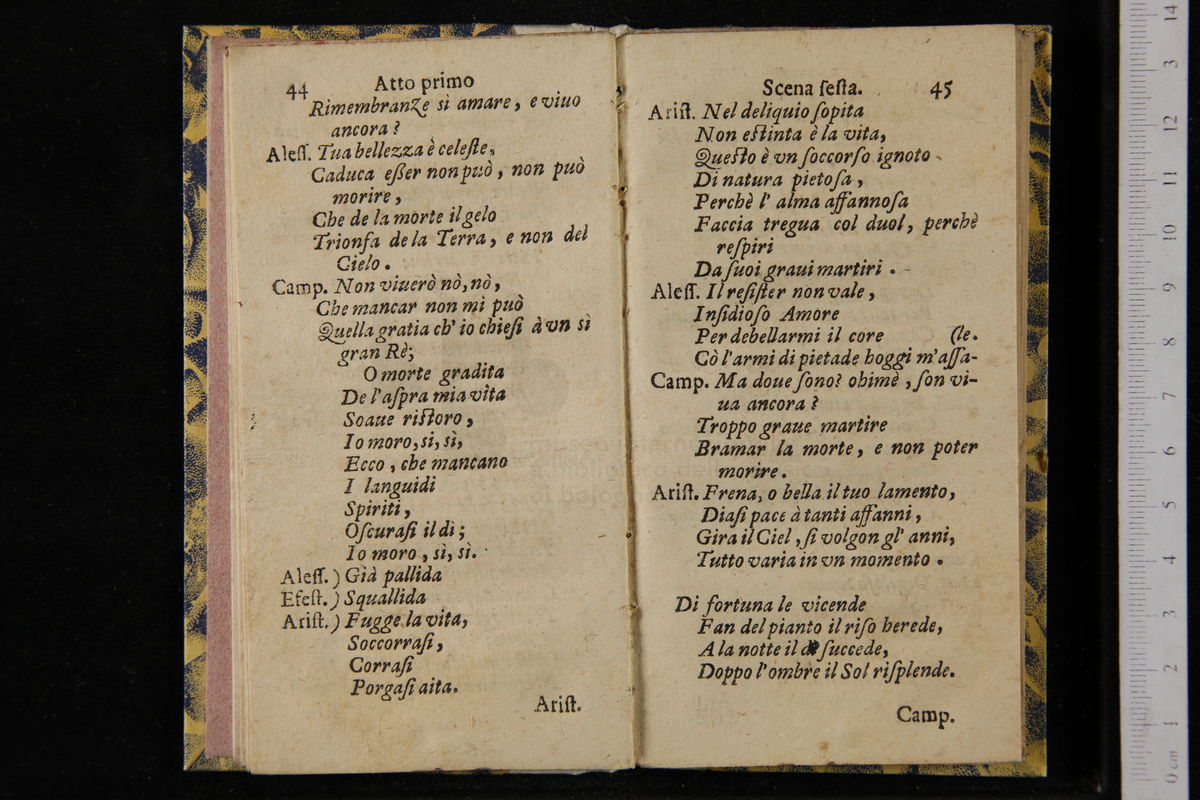 44 Atto primo
Rimembranze sì amare, e viuo
ancora?
Aleſſ. Tua bellezza è celeſte,
Caduca eſſer non può, non può
morire,
Che de la morte il gelo
Trionfa de la Terra, e non del
Cielo.
Camp. Non viuerò nò, nò,
Che mancar non mi può
Quella gratia ch' io chieſi à vn sì
gran Rè;
O morte gradita
De l'aſpra mia vita
Soaue riſtoro,
Io moro, sì, sì,
Ecco, che mancano
I languidi
Spiriti,
Oſcuraſi il dì;
Io moro, sì, sì.
Aleſſ.) Già pallida
Efeſt.) Squallida
Ariſt.) Fugge la vita,
Soccorraſi,
Corraſi
Porgaſi aita.
Ariſt.
Scena ſeſta. 45
Ariſt. Nel deliquio ſopita
Non eſtinta è la vita,
Queſto è vn ſoccorſo ignoto
Di natura pietoſa,
Perchè l' alma affannoſa
Faccia tregua col duol, perchè
reſpiri
Da ſuoi graui martiri.
Aleſſ. Il reſiſter non vale,
Inſidioſo Amore
Per debellarmi il core (le.
Cò l'armi di pietade hoggi m'aſſa-
Camp. Ma doue ſono? ohimè, ſon vi-
ua ancora?
Troppo graue martire
Bramar la morte, e non poter
morire.
Ariſt. Frena, o bella il tuo lamento,
Diaſi pace à tanti affanni,
Gira il Ciel, ſi volgon gl' anni,
Tutto varia in vn momento.
Di fortuna le vicende
Fan del pianto il riſo herede,
A la notte il ſuccede,
Doppo l'ombre il Sol riſplende.
Camp.